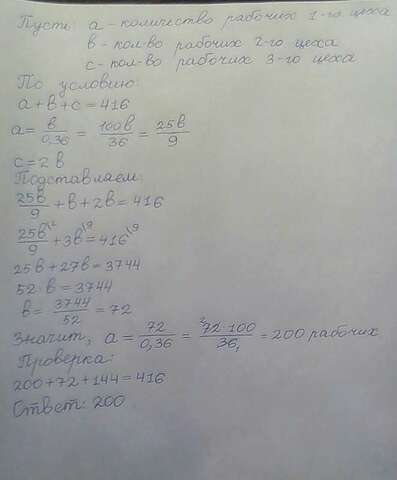 Пусть: а - количество рабочих 1-го цеха
в - кол-во рабочих 2-го цеха
с - кол-во рабочих 3-го цеха
По условию:
а+в+с=416
а= в/0,36 = 100в/36 = 25в/9
с=2в
Подставляем:
25в/9 +в+2в=416
25в/9 +3в=416
25в+27в=3744
52·в=3744
в= 3744/52 =72
Значит, а= 72/0,36 = 72·100/36 =200 рабочих
Проверка:
200+72+144=416
Ответ: 200